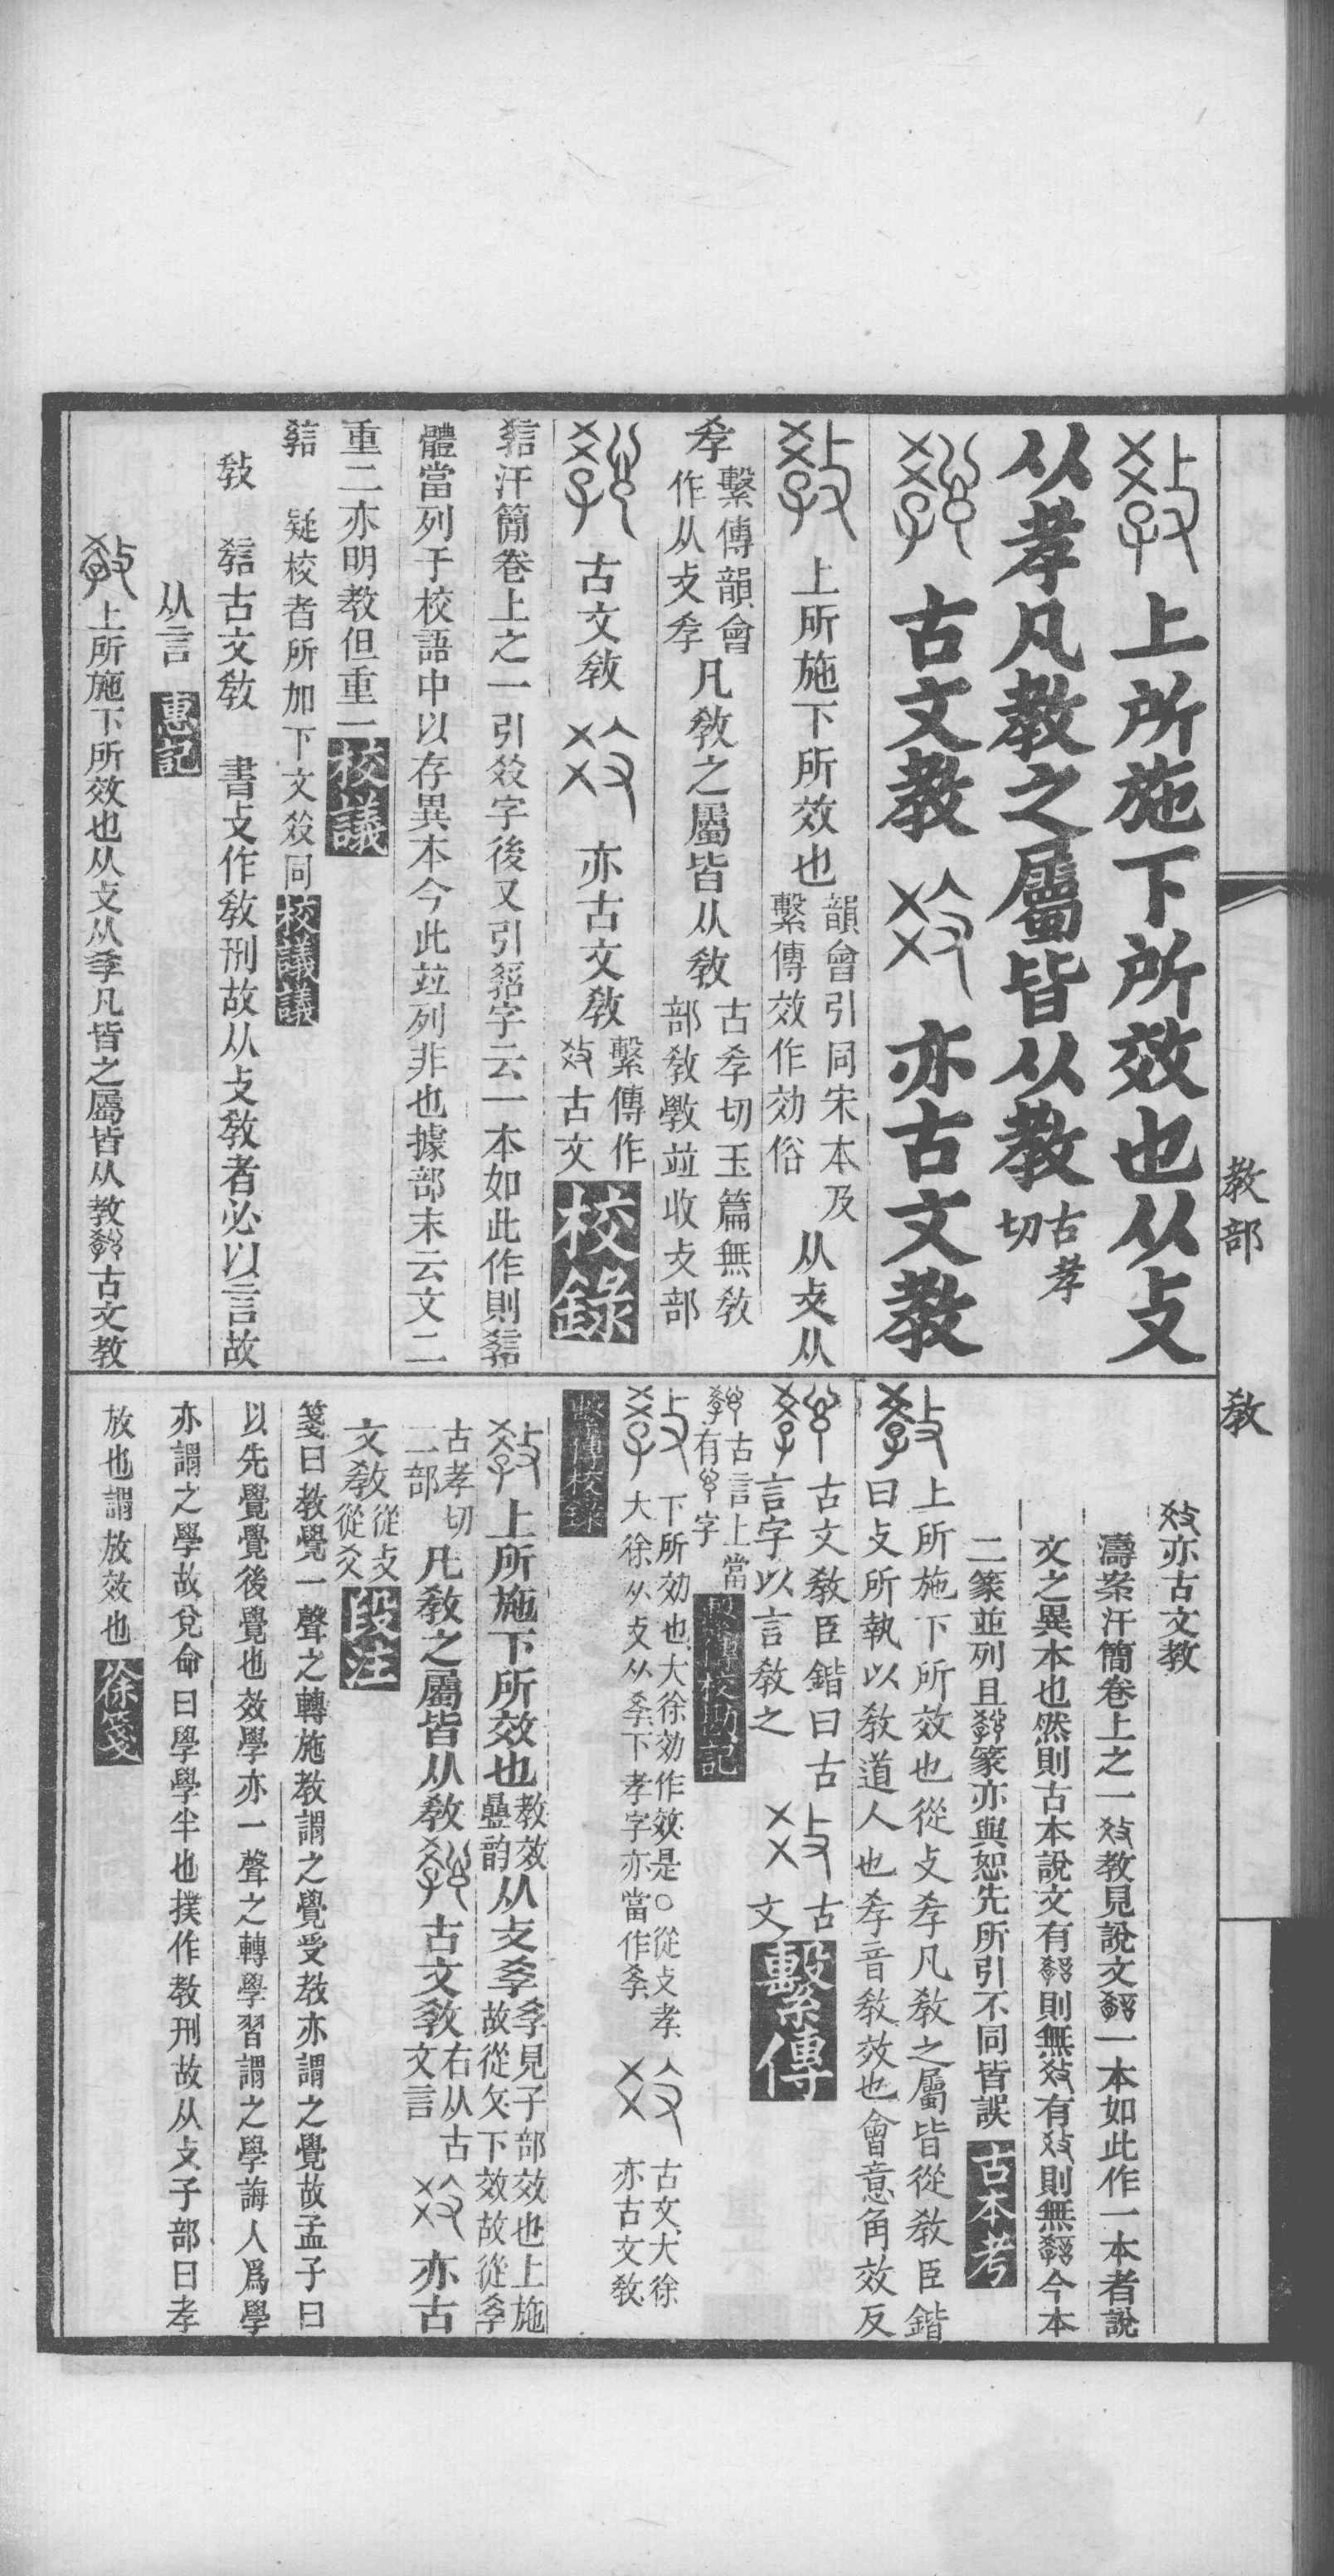 上所施下所效也从攴
从孝凡教之屬皆从教古孝切
古文教 亦古文教
上所施下所效也韻會引同宋本及繫傳效作効俗从攴从
孝繫傳韻會作从攴孝凡敎之屬皆从敎古孝切玉篇無敎部敎斆並收攴部
古文敎 亦古文敎繫傳作𢼂古文校錄
𧧿汗簡卷上之一引𢼂字後又引𧧿字云一本如此作則𧧿
體當列于校語中以存異本今此竝列非也據部末云文二
重二亦明教但重一校議
𧧿 疑校者所加下文𢼂同校議議
𢼂 𧧿古文敎 書攴作敎刑故从攴敎者必以言故
从言 惠記
上所施下所效也从攴从孝凡皆之屬皆从教𧧿古文教
𢼂亦古文教
濤案汗簡卷上之一𢼂教見說文𧧿一本如此作一本者說
文之異本也然則古本說文有𧧿則無𢼂有𢼂則無𧧿今本
二篆並列且𧧿篆亦與恕先所引不同皆誤 古本考
上所施下所效也從攴孝凡敎之屬皆從敎臣鍇
曰攴所執以敎道人也孝音敎效也會意角效反
古文敎臣鍇曰古言字以言敎之 古文繫傳
古言上當有字繫傳校勘記
下所効也大徐効作效是○從攴孝大徐从攴从孝下孝字亦當作孝 古文大徐亦古文敎
繫傳校錄
上所施下所效也教效疊韵从攴孝孝見子部效也上施故從攵下效故從孝
古孝切二部凡敎之屬皆从敎 古文敎右从古文言 亦古
文敎從攴從爻段注
箋曰教覺一聲之轉施教謂之覺受教亦謂之覺故孟子曰
以先覺覺後覺也效學亦一聲之轉學習謂之學誨人爲學
亦謂之學故兌命曰學學半也撲作教刑故从攴子部曰孝
放也謂放效也 徐箋
教部
敎